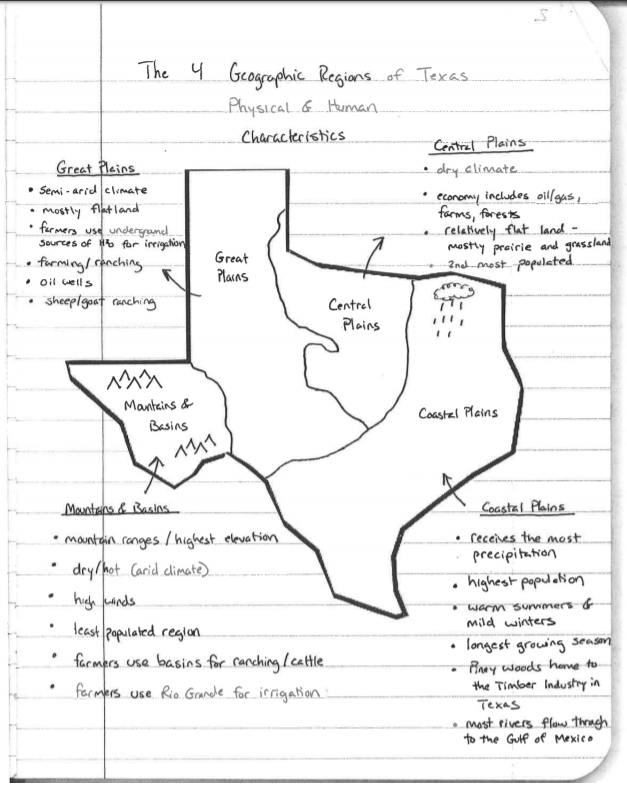 2
The 4 Geographic Regions of Texas
Physical & Human
Characteristics
Great Plains
• semi-arid climate
• mostly flatland
• farmers use underground
sources of H₂O for irrigation
• farming/ranching
• oil wells
• sheep/goat ranching
Central Plains
• dry climate
• economy includes oil/gas,
farms, forests
• relatively flat land -
mostly prairie and grassland
• 2nd most populated
Great
Plains
Central
Plains
Mountains &
Basins
Coastal Plains
Mountains & Basins
• mountain ranges / highest elevation
• dry/hot (arid climate)
• high winds
• least populated region
• farmers use basins for ranching/cattle
• farmers use Rio Grande for irrigation
Coastal Plains
• receives the most
precipitation
• highest population
• warm summers &
mild winters
• longest growing season
• Piney woods home to
the Timber Industry in
Texas
• most rivers flow through
to the Gulf of Mexico